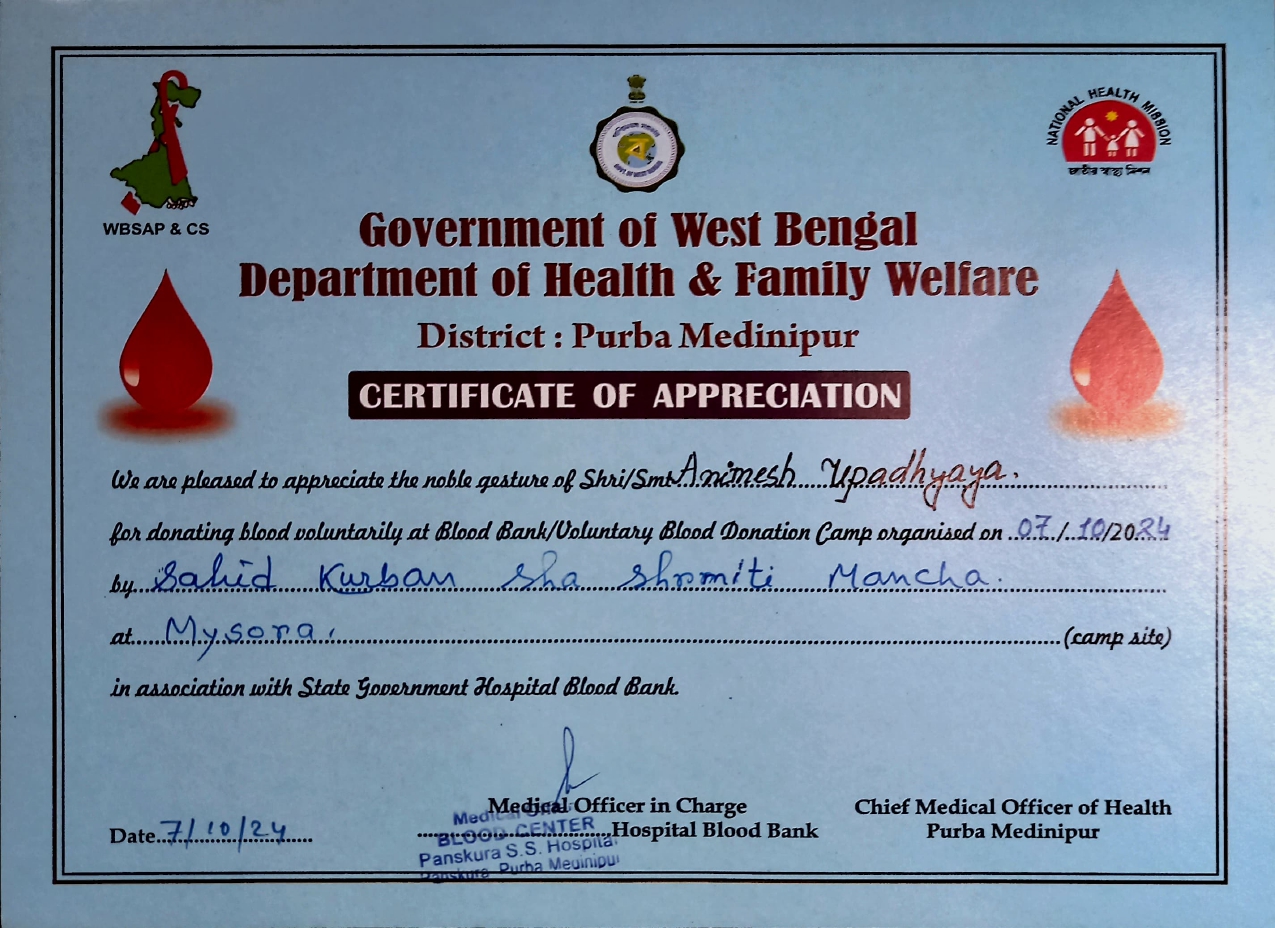 WBSAP & CS
NATIONAL HEALTH MISSION
জাতীয় স্বাস্থ্য মিশন
Government of West Bengal
Department of Health & Family Welfare
District : Purba Medinipur
CERTIFICATE OF APPRECIATION
We are pleased to appreciate the noble gesture of Shri/Smt. Animesh Upadhyaya.
for donating blood voluntarily at Blood Bank/Voluntary Blood Donation Camp organised on 07/10/2024
by Sahid Kurban Sha Shromiti Mancha.
at Mysora. (camp site)
in association with State Government Hospital Blood Bank.
Medical Officer in Charge
Hospital Blood Bank
Chief Medical Officer of Health
Purba Medinipur
Date 7/10/24
Medical
BLOOD CENTER
Panskura S.S. Hospital
Panskura, Purba Medinipur